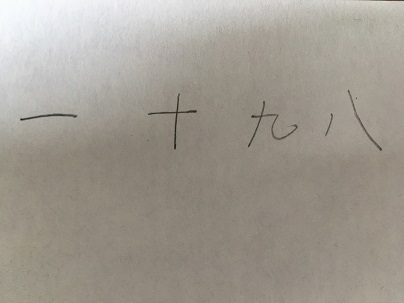 一 十 九 八